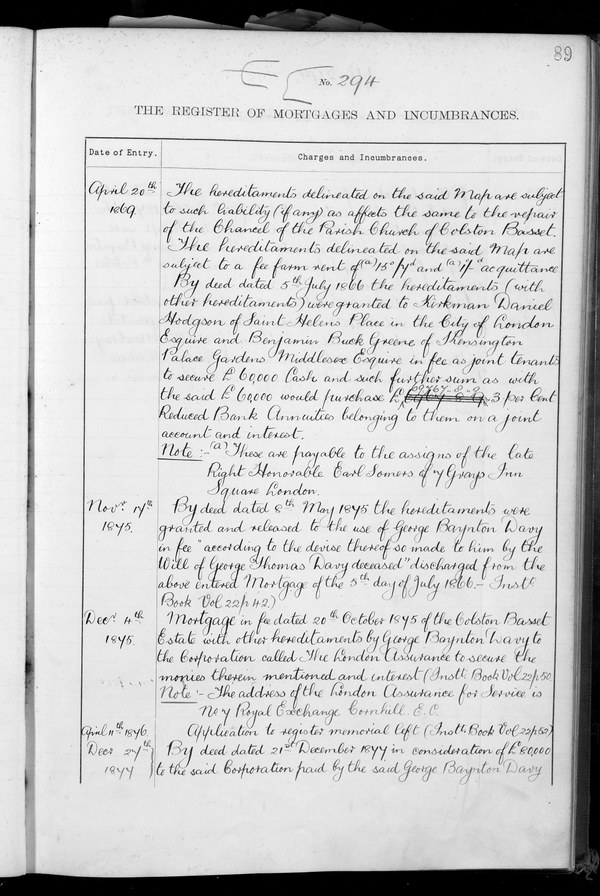 89
No. 294
THE REGISTER OF MORTGAGES AND INCUMBRANCES.
Date of Entry.
Charges and Incumbrances.
April 20th The hereditaments delineated on the said Map are subject
1869. to such liability (if any) as affects the same to the repair
of the Chancel of the Parish Church of Colston Basset.
The hereditaments delineated on the said Map are
subject to a fee farm rent of (a) 15s/7d and (a) 7d acquittance
By deed dated 5th July 1866 the hereditaments (with
other hereditaments) were granted to Kirkman Daniel
Hodgson of Saint Helens Place in the City of London
Esquire and Benjamin Buck Greene of Kensington
Palace Gardens Middlesex Esquire in fee as joint tenants
to secure £60,000 Cash and such further sum as with
the said £60,000 would purchase £ 69767-8-9 3 per Cent
Reduced Bank Annuities belonging to them on a joint
account and interest.
Note:- (a) These are payable to the assigns of the late
Right Honorable Earl Somers of 7 Grays Inn
Square London.
Novr. 17th By deed dated 8th May 1875 the hereditaments were
1875. granted and released to the use of George Baynton Davy
in fee "according to the devise thereof so made to him by the
Will of George Thomas Davy deceased" discharged from the
above entered Mortgage of the 5th day of July 1866.- Instt.
Book Vol 22 p 42.)
Decr. 4th Mortgage in fee dated 20th October 1875 of the Colston Basset
1875. Estate with other hereditaments by George Baynton Davy to
the Corporation called The London Assurance to secure the
monies therein mentioned and interest (Instt. Book Vol. 22 p. 50
Note:- The address of the London Assurance for Service is
No 7 Royal Exchange Cornhill. E.C.
April 11th 1876. Application to register memorial left (Instt. Book Vol 22 p 52)
Decr 27th By deed dated 21st December 1877 in consideration of £80,000
1877 to the said Corporation paid by the said George Baynton Davy